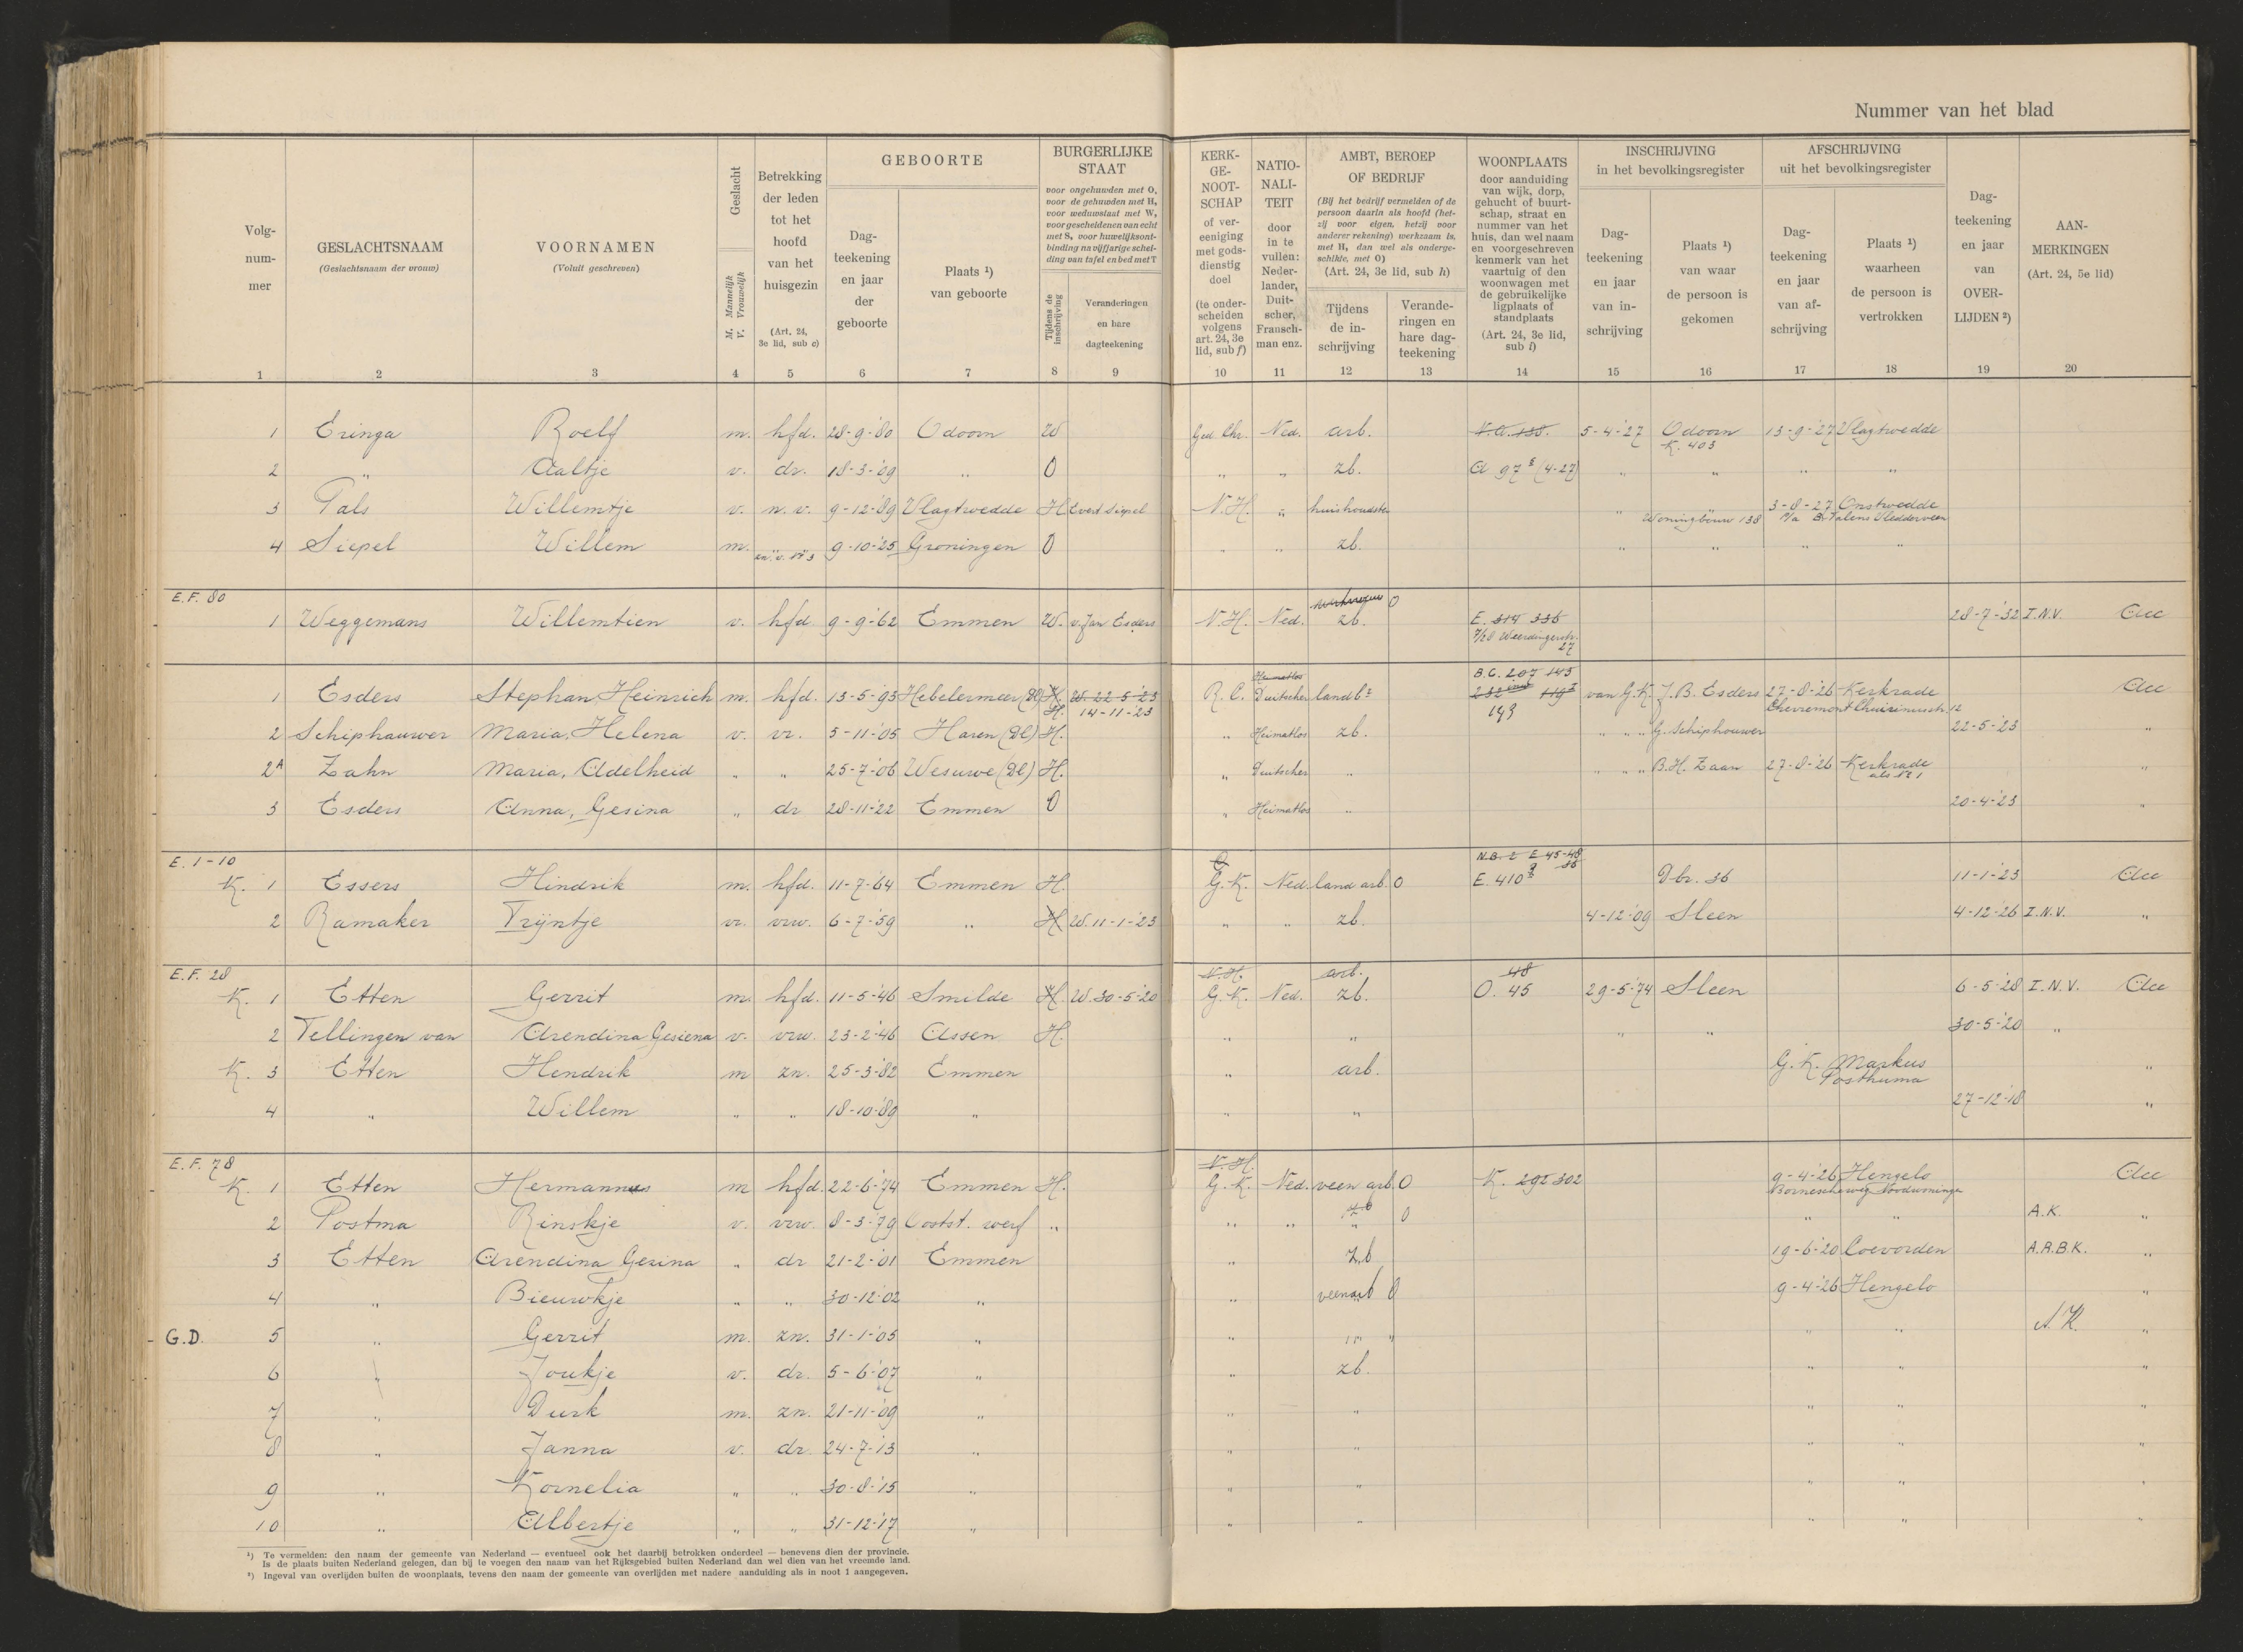 Nummer van het blad
Volg-
num-
mer
GESLACHTSNAAM
(Geslachtsnaam der vrouw)
VOORNAMEN
(Voluit geschreven)
Geslacht
M. Mannelijk
V. Vrouwelijk
Betrekking
der leden
tot het
hoofd
van het
huisgezin
(Art. 24,
3e lid, sub c)
GEBOORTE
Dag-
teekening
en jaar
der
geboorte
Plaats ¹)
van geboorte
BURGERLIJKE
STAAT
voor ongehuwden met O,
voor de gehuwden met H,
voor weduwstaat met W,
voor gescheidenen van echt
met S, voor huwelijksont-
binding na vijfjarige schei-
ding van tafel en bed met T
Tijdens de
inschrijving
Veranderingen
en hare
dagteekening
KERK-
GE-
NOOT-
SCHAP
of ver-
eeniging
met gods-
dienstig
doel
(te onder-
scheiden
volgens
art. 24, 3e
lid, sub f)
NATIO-
NALI-
TEIT
door
in te
vullen:
Neder-
lander,
Duit-
scher,
Fransch-
man enz.
AMBT, BEROEP
OF BEDRIJF
(Bij het bedrijf vermelden of de
persoon daarin als hoofd (het-
zij voor eigen, hetzij voor
anderer rekening) werkzaam is,
met H, dan wel als onderge-
schikte, met O)
(Art. 24, 3e lid, sub h)
Tijdens
de in-
schrijving
Verande-
ringen en
hare dag-
teekening
WOONPLAATS
door aanduiding
van wijk, dorp,
gehucht of buurt-
schap, straat en
nummer van het
huis, dan wel naam
en voorgeschreven
kenmerk van het
vaartuig of den
woonwagen met
de gebruikelijke
ligplaats of
standplaats
(Art. 24, 3e lid,
sub i)
INSCHRIJVING
in het bevolkingsregister
Dag-
teekening
en jaar
van in-
schrijving
Plaats ¹)
van waar
de persoon is
gekomen
AFSCHRIJVING
uit het bevolkingsregister
Dag-
teekening
en jaar
van af-
schrijving
Plaats ¹)
waarheen
de persoon is
vertrokken
Dag-
teekening
en jaar
van
OVER-
LIJDEN ²)
AAN-
MERKINGEN
(Art. 24, 5e lid)
1 2 3 4 5 6 7 8 9 10 11 12 13 14 15 16 17 18 19 20
1 Eringa Roelf m. hfd. 28-9-'80 Odoorn W Ged. Chr. Ned. arb. 5-4-'27 Odoorn 13-9-'27 Vlagtwedde
K. 403
2 " Aaltje v. dr. 18-3-'09 " O " " zb. A 97 (4-27) " " " "
3 Pals Willemtje v. n.v. 9-12-'89 Vlagtwedde H Evert Siepel N.H. " huishoudster " Woningbouw 138 3-8-27 Onstwedde
p/a B. Talens Vledderveen
4 Siepel Willem m. zn. v. No 3 9-10-'25 Groningen O " " zb. " " " "
E.F. 80
1 Weggemans Willemtien v. hfd. 9-9-'62 Emmen W. v. Jan Esders N.H. Ned. zb. O E. 314 336 28-7-'32 I.N.V. Acc
7/28 Weerdingerstr.
27
B.C. 207 143
1 Esders Stephan, Heinrich m. hfd. 13-5-'93 Hebelermeer (Dl) H. W. 22-5-'23 R.C. Duitscher landb. 232 119 van G.K. J.B. Esders 27-8-'26 Kerkrade Acc
H. 14-11-'23 Heimatlos 149 Chevremont 12
2 Schiphauwer Maria, Helena v. vr. 5-11-'05 Haren (Dl) H. " Heimatlos zb. " " " G. Schiphouwer 22-5-'23 "
2A Zahn Maria, Adelheid " " 25-7-'06 Wesuwe (Dl) H. " Duitscher " " " " B.H. Zaan 27-8-'26 Kerkrade "
als No 1
3 Esders Anna, Gesina " dr 28-11-'22 Emmen O " Heimatlos " 20-4-'23 "
E. 1-10
N.B. 2 E 45-48
36
K. 1 Essers Hindrik m. hfd. 11-7-'64 Emmen H. G.K. Ned. land arb. O E. 410 Dbr. 36 11-1-'23 Acc
2 Ramaker Trijntje vr. vrw. 6-7-'59 " H W. 11-1-'23 " " zb. 4-12-'09 Sleen 4-12-'26 I.N.V. "
E.F. 28
N.H. arb. 48
K. 1 Etten Gerrit m. hfd. 11-5-'46 Smilde H. W. 30-5-'20 G.K. Ned. zb. O. 45 29-5-'74 Sleen 6-5-'28 I.N.V. Acc
2 Tellingen van Arendina Gesiena v. vrw. 23-2-'46 Assen H. " " " " 30-5-'20 "
K. 3 Etten Hendrik m zn. 25-3-'82 Emmen " arb. G.K. Markus "
Posthuma
4 " Willem " " 18-10-'89 " " " 27-12-'18 "
E.F. 78
N.H.
K. 1 Etten Hermannus m hfd. 22-6-'74 Emmen H. G.K. Ned. veen arb. O K. 292 302 9-4-'26 Hengelo Acc
Bornescheweg Noodwoningen
2 Postma Rinskje v. vrw. 8-3-'79 Ooststellingwerf " " " " O " " A.K. "
3 Etten Arendina Gesina " dr 21-2-'01 Emmen " zb 19-6-'20 Coevorden A.R.B.K. "
4 " Bieuwkje " " 30-12-'02 " " veenarb O 9-4-'26 Hengelo "
G.D. 5 " Gerrit m. zn. 31-1-'05 " " " " " " A.K. "
6 " Joukje v. dr. 5-6-'07 " " zb. " " "
7 " Durk m. zn. 21-11-'09 " " " " " "
8 " Janna v. dr. 24-7-'13 " " " " " "
9 " Kornelia " " 30-8-'15 " " " " " "
10 " Albertje " " 31-12-'17 " " " " " "
¹) Te vermelden: den naam der gemeente van Nederland — eventueel ook het daarbij betrokken onderdeel — benevens dien der provincie.
Is de plaats buiten Nederland gelegen, dan bij te voegen den naam van het Rijksgebied buiten Nederland dan wel dien van het vreemde land.
²) Ingeval van overlijden buiten de woonplaats, tevens den naam der gemeente van overlijden met nadere aanduiding als in noot 1 aangegeven.